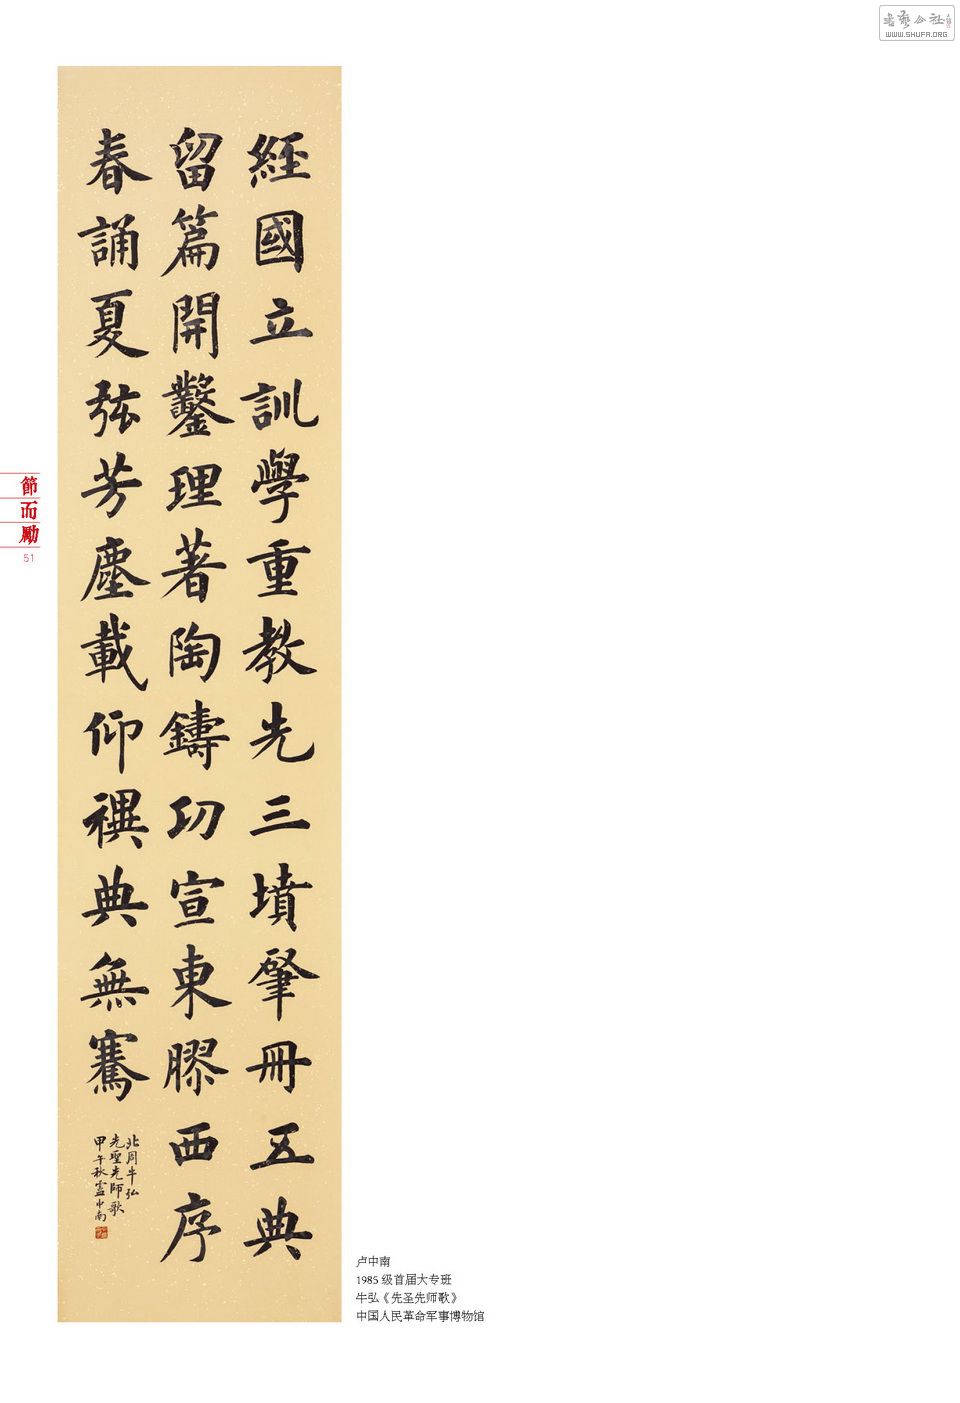 經國立訓學重教先三墳肇冊五典
留篇開鑿理著陶鑄功宣東膠西序
春誦夏弦芳塵載仰禩典無騫
北周牛弘
先聖先師歌
甲午秋盧中南
節而勵
51
卢中南
1985 级首届大专班
牛弘《先圣先师歌》
中国人民革命军事博物馆
書藝公社
WWW.SHUFA.ORG